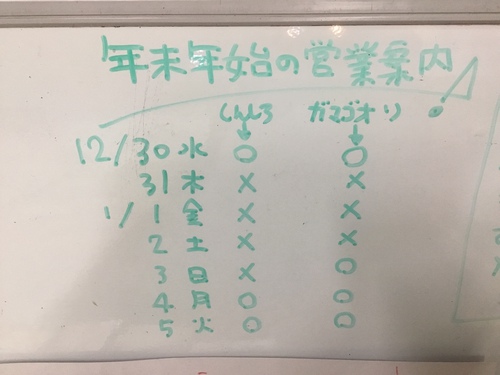 年末年始の営業案内
しんしろ ガマゴオリ
12/30 水 ○ ○
31 木 × ×
1/1 金 × ×
2 土 × ×
3 日 × ○
4 月 ○ ○
5 火 ○ ○